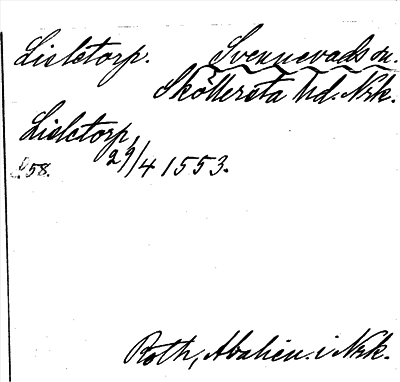 Lisletorp. Svennevads sn.
Sköllersta hd. Nrk.
Lisletorp,
29/4 1553.
s. 58.
Roth, Abalien. i Nrk.